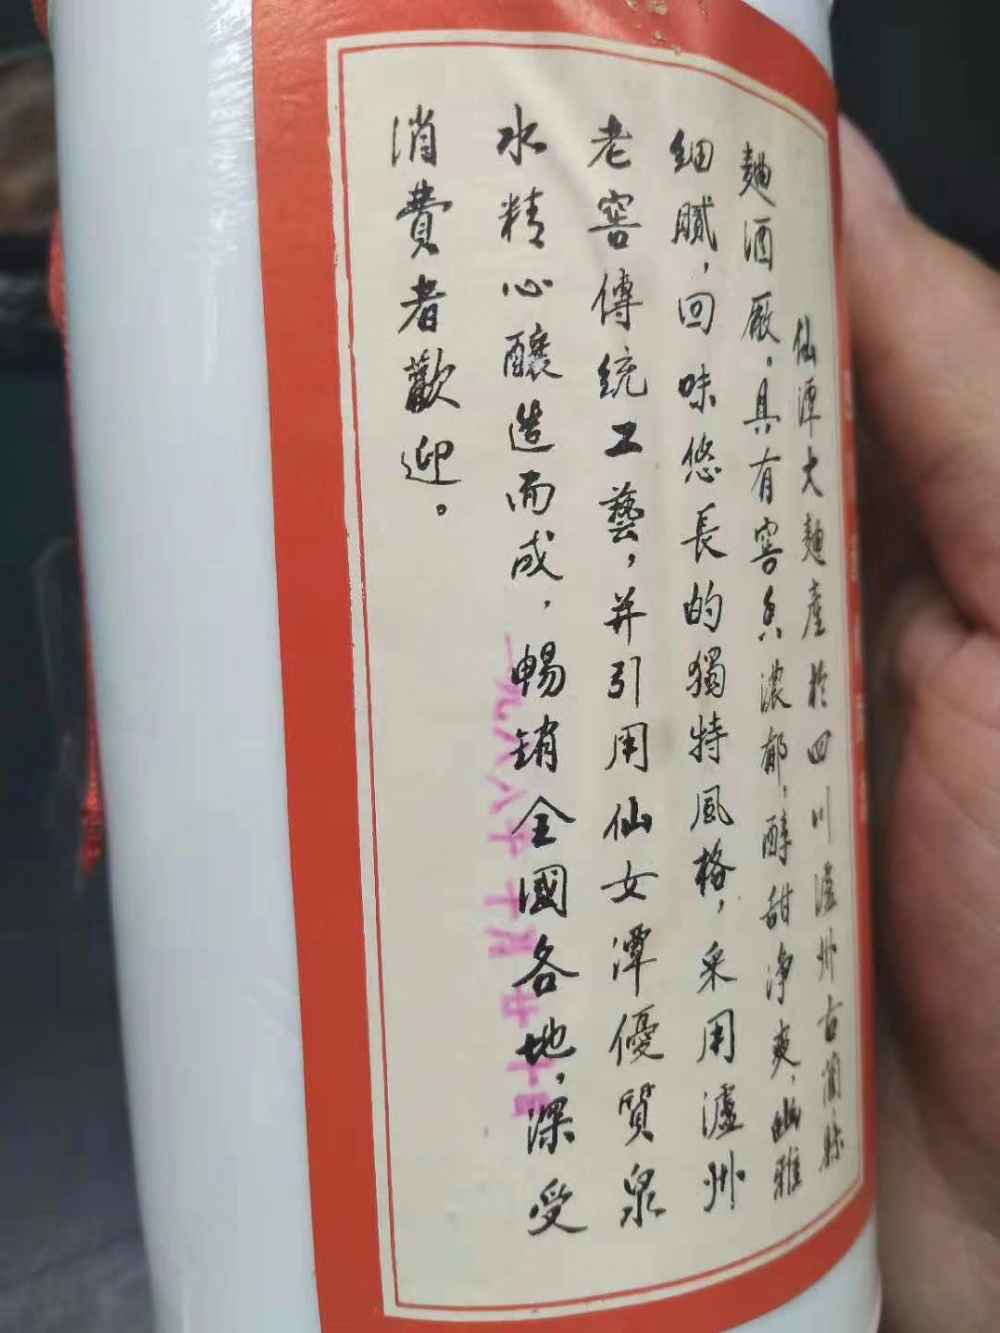 仙潭大麯產於四川瀘州古藺縣
麯酒厰。具有窖香濃郁，醇甜净爽，幽雅
細膩，回味悠長的獨特風格，采用瀘州
老窖傳统工藝，并引用仙女潭優質泉
水精心釀造而成，暢銷全國各地，深受
消費者歡迎。
一九八八年十月廿七日